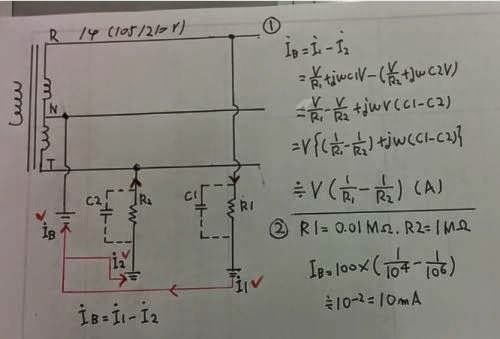 R 1φ (105/210V)
N
T
C2 R2 C1 R1
İB
İ2
İ1
İB = İ1 - İ2
①
İB = İ1 - İ2
= V/R1 + jωC1V - (V/R2 + jωC2V)
= V/R1 - V/R2 + jωV(C1-C2)
= V{(1/R1 - 1/R2) + jω(C1-C2)}
≒ V(1/R1 - 1/R2) (A)
② R1 = 0.01MΩ. R2 = 1MΩ
IB = 100×(1/10⁴ - 1/10⁶)
≒ 10⁻² = 10mA